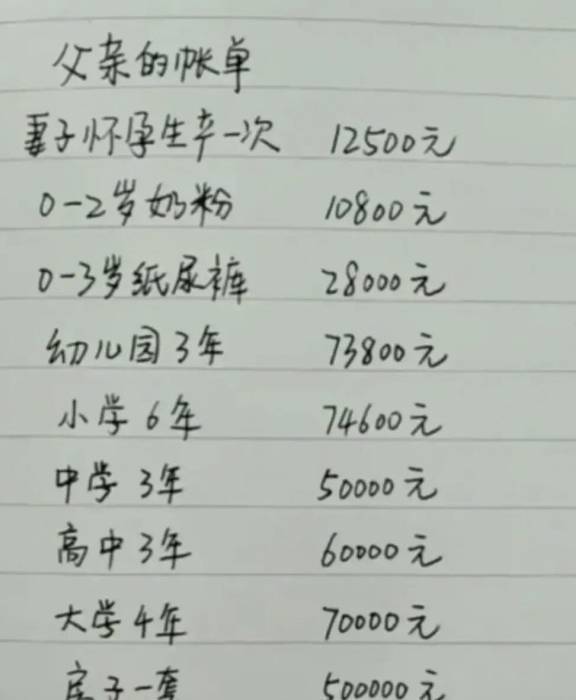 父亲的帐单
妻子怀孕生产一次 12500元
0-2岁奶粉 10800元
0-3岁纸尿裤 28000元
幼儿园3年 73800元
小学6年 74600元
中学3年 50000元
高中3年 60000元
大学4年 70000元
房子一套 500000元